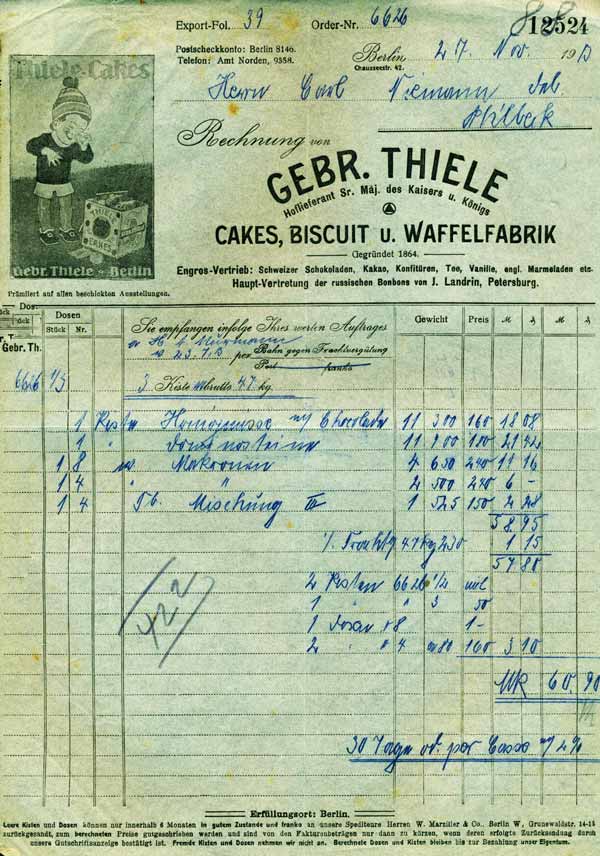 Export-Fol. 39 Order-Nr. 6626 12524
Postscheckkonto: Berlin 8146.
Telefon: Amt Norden, 9358.
Berlin 27 Nov. 191
Chausseestr. 42.
Herrn Carl Niemann
Thiele-Cakes
THIELE
CAKES
Gebr. Thiele - Berlin
Prämiiert auf allen beschickten Ausstellungen.
Rechnung von
GEBR. THIELE
Hoflieferant Sr. Maj. des Kaisers u. Königs
CAKES, BISCUIT u. WAFFELFABRIK
Gegründet 1864.
Engros-Vertrieb: Schweizer Schokoladen, Kakao, Konfitüren, Tee, Vanille, engl. Marmeladen etc.
Haupt-Vertretung der russischen Bonbons von J. Landrin, Petersburg.
Dosen Gewicht Preis M ₰ M ₰
Stück Nr. Sie empfangen infolge Ihres werten Auftrages
Gebr. Th. per Bahn gegen Frachtvergütung
Post franko
6626 1/3 3 Kisten Brutto 47 kg.
1 Kiste Chocolade 11 300 160 18 08
1 " Dominosteine 11 900 180 21 42
1 8 Makronen 4 650 240 11 16
1 4 " " 2 500 240 6 -
1 4 Mischung III 1 525 150 2 28
58.95
47 kg 230 1 15
57 80
2 Kisten 6626 1/2
1 " " 3 50
1 Dosen 8 1-
2 " " 4 80 160 3 10
Mk 60.90
422
30 Tage od. per Cassa 2%
Erfüllungsort: Berlin.
Leere Kisten und Dosen können nur innerhalb 6 Monaten in gutem Zustande und franko an unsere Spediteure Herren W. Marzillier & Co., Berlin W, Grunewaldstr. 14-15
zurückgesandt, zum berechneten Preise gutgeschrieben werden und sind von den Fakturenbeträgen nur dann zu kürzen, wenn deren erfolgte Zurücksendung durch
unsere Gutschriftsanzeige bestätigt ist. Fremde Kisten und Dosen nehmen wir nicht an. Berechnete Dosen und Kisten bleiben bis zur Bezahlung unser Eigentum.